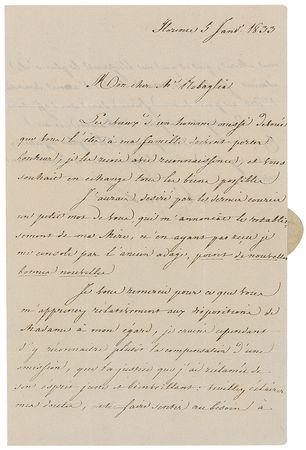 Florence 5 Janv. 1833
Mon cher Mr. Robaglia
Les vœux d'un homme aussi dévoué
que vous l'êtes à ma famille doivent porter
bonheur, je les reçois avec reconnaissance, et vous
souhaite en échange tous les biens possible
J'aurais désiré par le dernier courrier
un petit mot de vous qui m'annonçat le rétablis-
sement de ma Mère, n'en ayant pas reçu je
me console par l'ancien adage, point de nouvelles
bonnes nouvelles
Je vous remercie pour ce que vous
m'apprenez relativement aux dispositions de
Madame à mon égard, je crains cependant
d'y reconnaître plutôt la compensation d'une
omission, que la justice que j'ai réclamée de
son esprit juste et bienveillant: veuillez éclairer
mes doutes, et faire sentir au besoin à